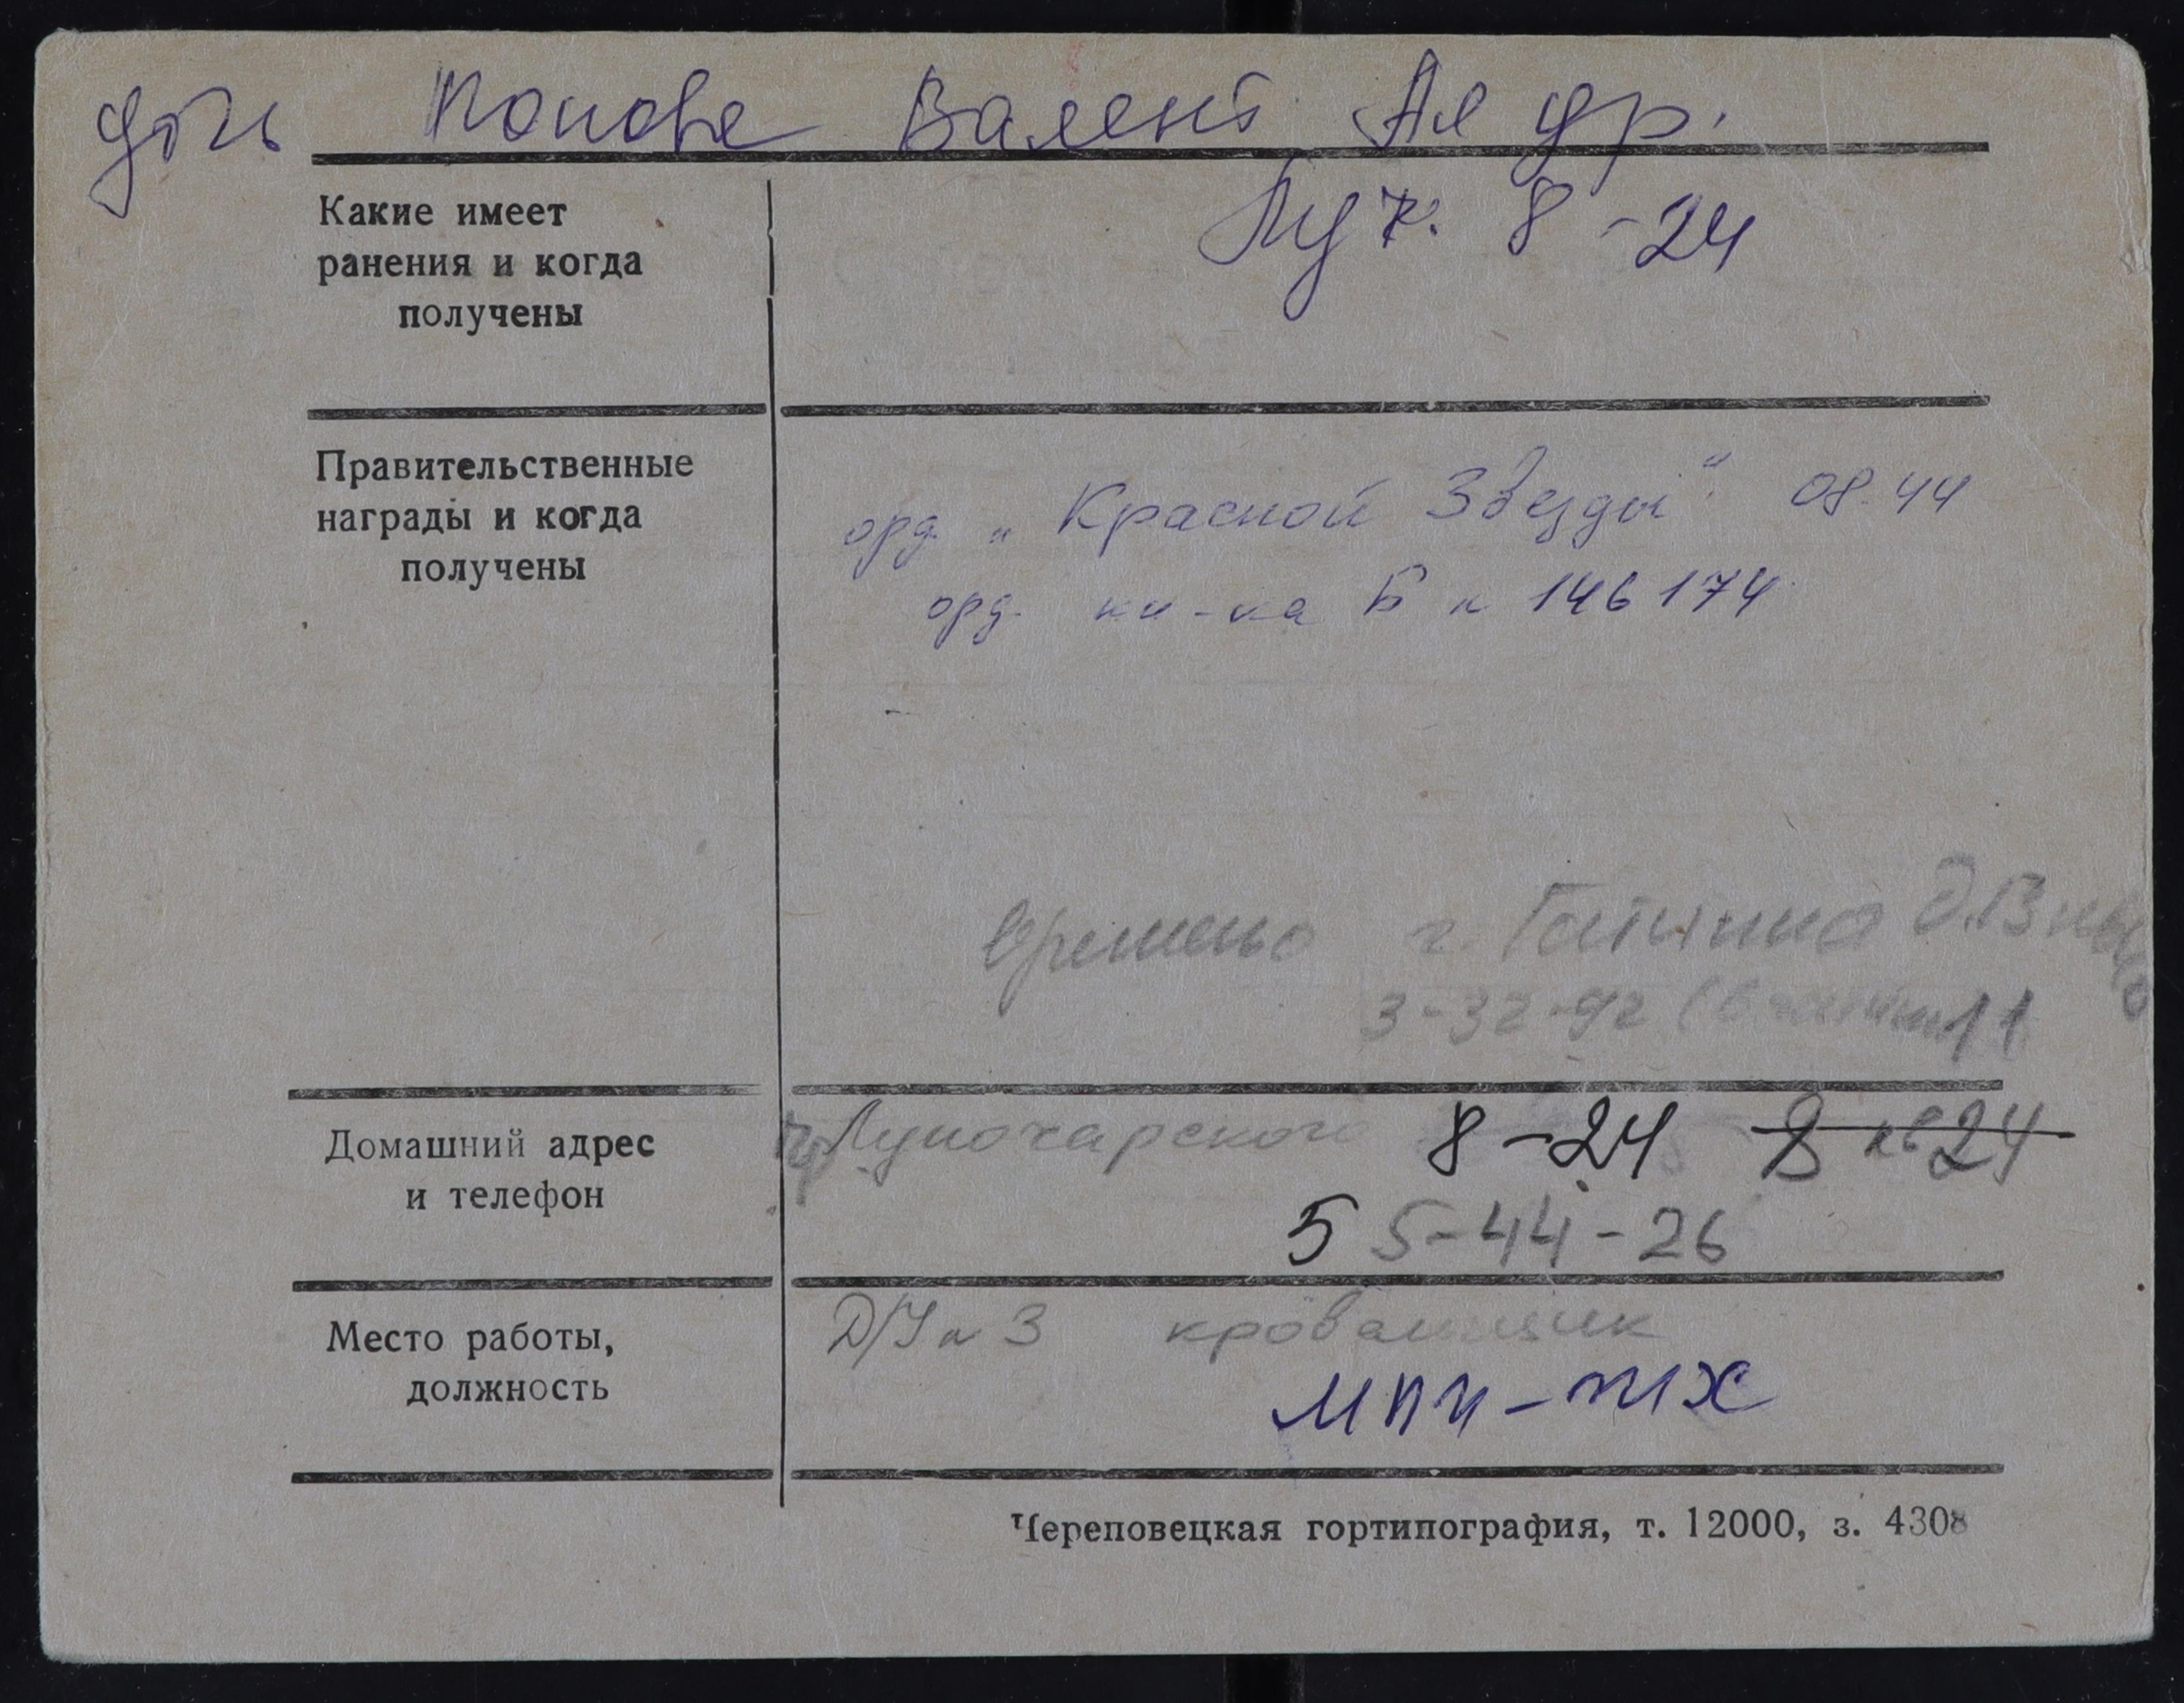 дочь Попова Валент. Ал др.
Какие имеет
ранения и когда
получены
Луч. 8-24
Правительственные
награды и когда
получены
орд. „Красной Звезды". 08.44
орд. кн-ка Б н 146174
временно г. Гатчина
3-32-92
Домашний адрес
и телефон
Луночарского 8-24 8 кв 24
5 5-44-26
Место работы,
должность
Д/У н 3 кровельщик
Череповецкая гортипография, т. 12000, з. 4308